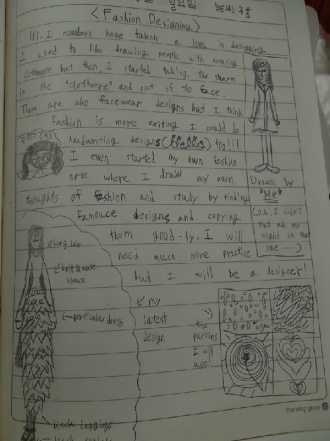 일요일
<Fashion Designing>
Hi, I nowadays have taken a love in designing
I used to like drawing people with amazing
clothwore but then, I started taking the charm
in the "clothwore" and out of the face.
There are also facewear designs but I think
fashion is more exiting I could do
handwriting designs (Hello) try!!!
I even started my own fashion
note where I draw my own
thoughts of fashion and study by finding
famouce designs and copying
them good-ly. I will
need much more practice
but I will be a designer
Drawn by
"Me"
(Ok, I didn't
put all my
might in that
one ---)
particular dress
black leggings
↙ my
latest
design
the
patterns
I will
use!
morning glory